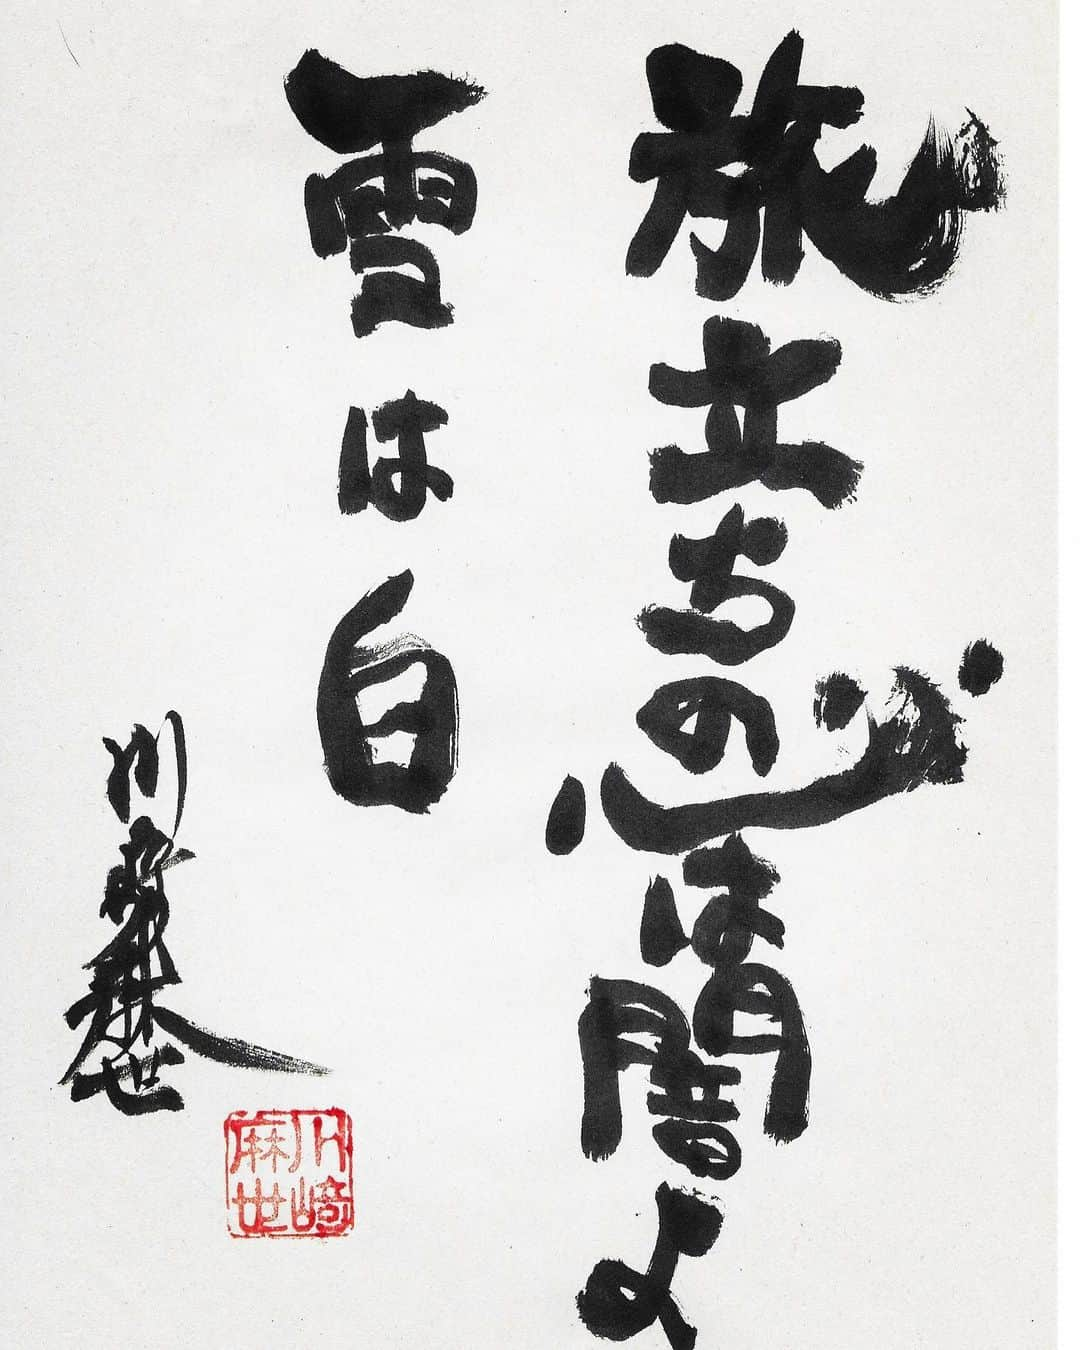 旅立ちの心は闇よ
雪は白
川﨑麻世
川﨑
麻世